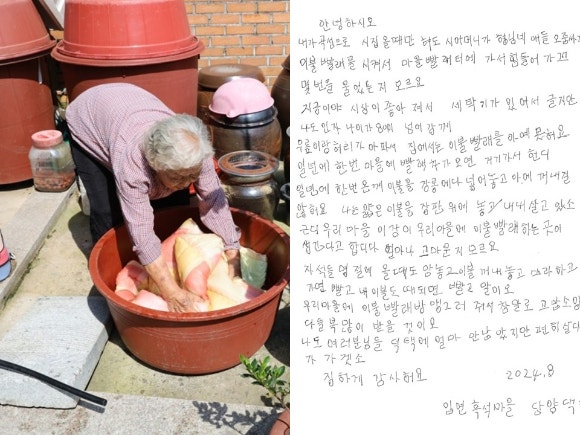 안녕하시오
내가 곡성으로 시집 올때만 해도 시어머니가 형님네 애들 오줌싸개
이불 빨래를 시켜서 마을 빨래터에 가서 힘들어 가꼬
몇번을 울었는지 모르요
지금이야 시상이 좋아 져서 세탁기가 있어서 글지만
나도 인자 나이가 80이 넘어 갑께
무릎이랑 허리가 아파서 집에서는 이불빨래를 아예 못허요
일년에 한번 마을에 빨래차가 오면 거기가서 헌디
일년에 한번 온께 이불을 장롱에다 넣어놓고 아예 꺼내질
않허요 나는 얇은 이불을 장판 위에 놓고 내내 살고 있소
근디 우리 마을 이장이 우리마을에 이불 빨래하는 곳이
생긴다고 합디다 얼마나 고마운지 모르요
자식들 명절에 올때도 맘놓고 이불 꺼내 놓고
가면 빨고 내 이불도 때되면 빨고
우리마을에 이불 빨래방 맹그러 주서 참말로 고맙소잉
다들 복 많이 받을 것이오
나도 여러분들 덕택에 얼마 안남았지만 편히 살다
가 가겟소
징하게 감사허요 2024.8
입면 흑석마을 담양댁